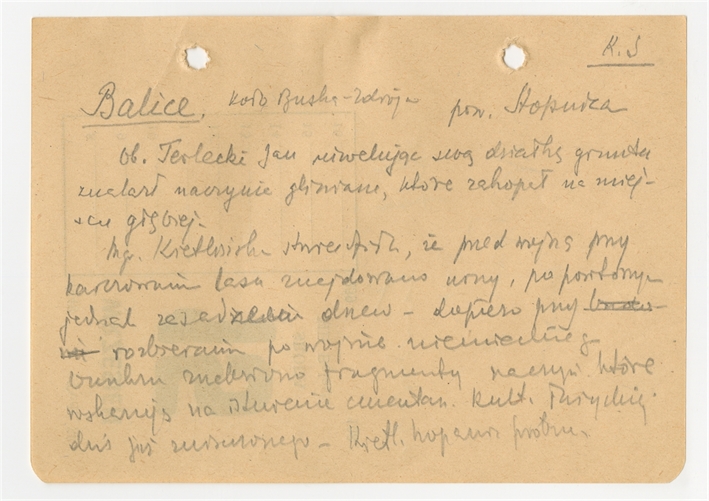 K.S
Balice, koło Buska-Zdroju pow. Stopnica
Ob. Terlecki Jan niwelując swą działkę gruntu
znalazł naczynie gliniane, które zakopał na miej-
scu głębiej.
Mg. Kietlińska stwierdziła, że przed wojną przy
karczowaniu lasu znajdowano urny, po powtórnym
jednak zasadzeniu drzew – dopiero przy
rozbieraniu po wojnie niemieckiego
bunkru znaleziono fragmenty naczyń które
wskazują na istnienie cmentarz. kult. łużyckiej
dziś już zniszczonego – Kietl. kopała próbn.